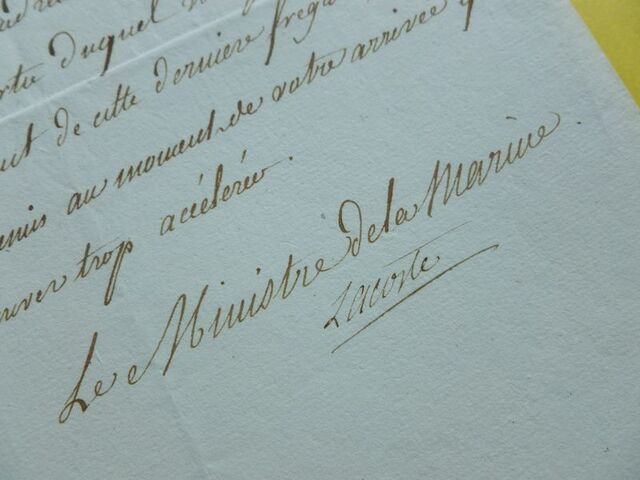 duquel
de cette dernière
au moment de votre arrivée
trop accélérée.
Le Ministre de la Marine.
Lacoste